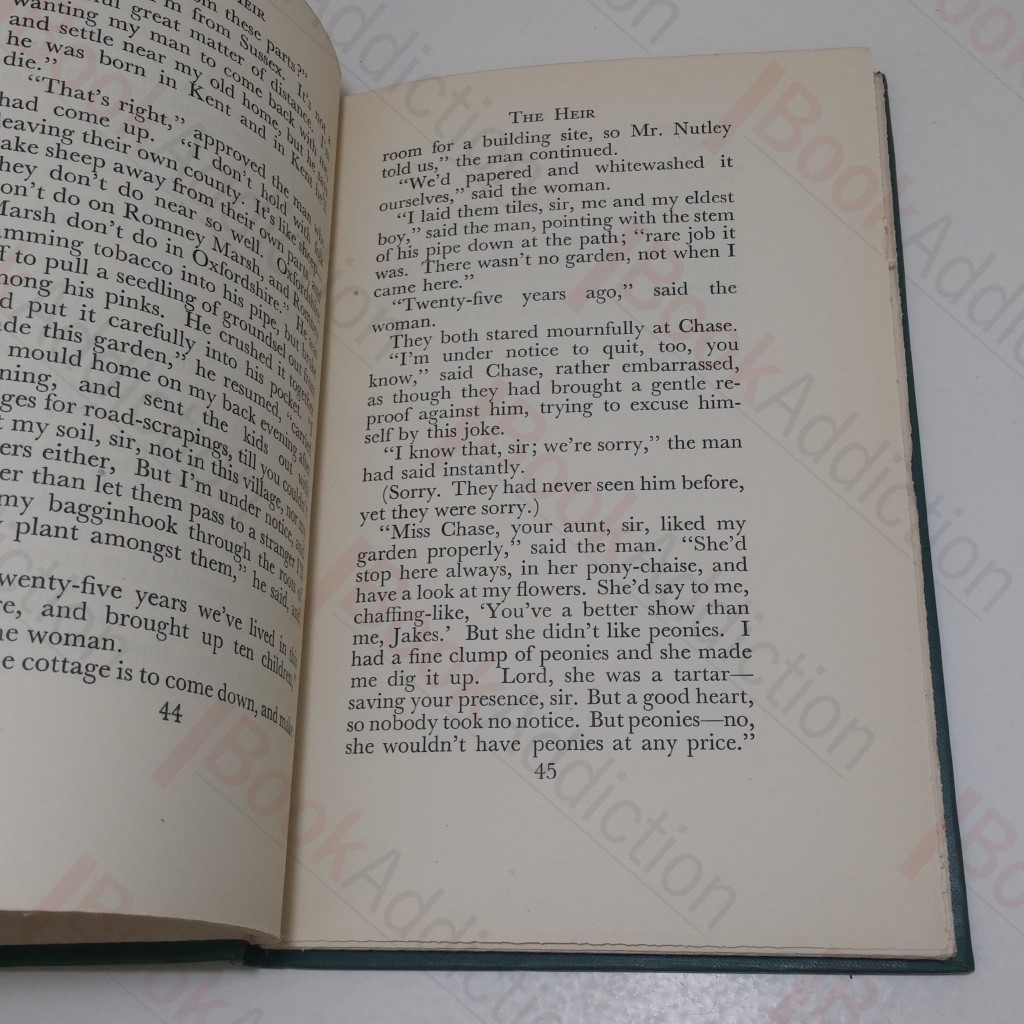 HEIR
these parts?"
I'm from Sussex.
great matter of distance. It's not
wanting my man to come back with
and settle near my old home, but he says
he was born in Kent and in Kent
die."
"That's right," approved the man who
had come up. "I don't hold with
leaving their own county. It's like sheep
take sheep away from their own parts, and
they don't do near so well. Oxfordshire
don't do on Romney Marsh, and Romney
Marsh don't do in Oxfordshire." He was
ramming tobacco into his pipe, but
to pull a seedling of groundsel out from
among his pinks. He crushed it together
and put it carefully into his pocket. "I
made this garden," he resumed, "carried
mould home on my back evening after
evening, and sent the kids out with
for road-scrapings, till you couldn't
my soil, sir, not in this village, nor any
either, But I'm under notice, and
than let them pass to a stranger I'd
my bagginhook through the roots of
plant amongst them," he said, and
twenty-five years we've lived in this
and brought up ten children,"
the woman.
cottage is to come down, and make
44
THE HEIR
room for a building site, so Mr. Nutley
told us," the man continued.
"We'd papered and whitewashed it
ourselves," said the woman.
"I laid them tiles, sir, me and my eldest
boy," said the man, pointing with the stem
of his pipe down at the path; "rare job it
was. There wasn't no garden, not when I
came here."
"Twenty-five years ago," said the
woman.
They both stared mournfully at Chase.
"I'm under notice to quit, too, you
know," said Chase, rather embarrassed,
as though they had brought a gentle re-
proof against him, trying to excuse him-
self by this joke.
"I know that, sir; we're sorry," the man
had said instantly.
(Sorry. They had never seen him before,
yet they were sorry.)
"Miss Chase, your aunt, sir, liked my
garden properly," said the man. "She'd
stop here always, in her pony-chaise, and
have a look at my flowers. She'd say to me,
chaffing-like, 'You've a better show than
me, Jakes.' But she didn't like peonies. I
had a fine clump of peonies and she made
me dig it up. Lord, she was a tartar—
saving your presence, sir. But a good heart,
so nobody took no notice. But peonies—no,
she wouldn't have peonies at any price."
45
BookAddiction